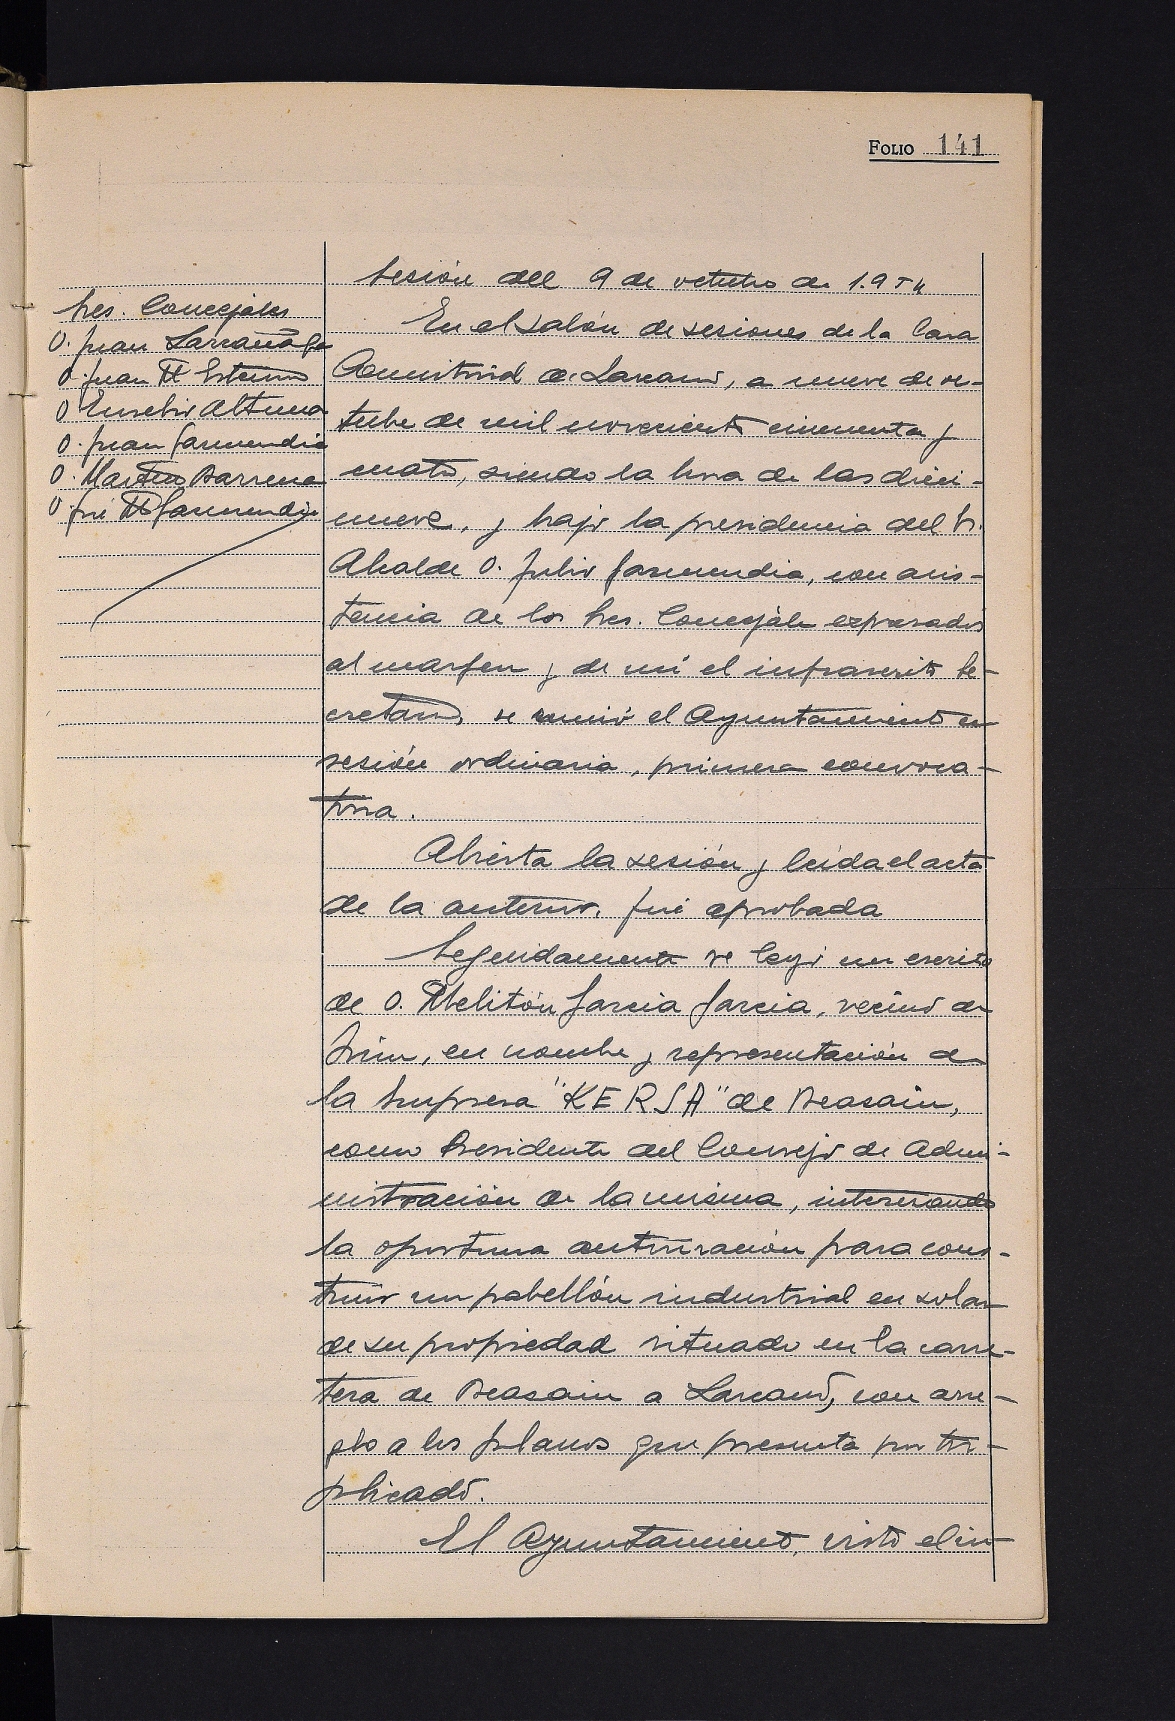 FOLIO 141
Sesión del 9 de octubre de 1.954
Sres. Concejales
D. Juan Larrañaga
D. Juan Mª
D. Eusebio Altuna
D. Juan Garmendia
D. Martin Barrena
D. José Mª Garmendia
En el salón de sesiones de la Casa
Consistorial de Lazcano, a nueve de oc-
tubre de mil novecientos cincuenta y
cuatro, siendo la hora de las dieci-
nueve, y bajo la presidencia del Sr.
Alcalde D. Julio Garmendia, con asis-
tencia de los Sres. Concejales expresados
al margen y de mi el infrascrito Se-
cretario, se reunió el Ayuntamiento en
sesión ordinaria, primera convoca-
toria.
Abierta la sesión y leída el acta
de la anterior, fué aprobada
Seguidamente se leyó un escrito
de D. Melitón Garcia Garcia, vecino de
Irún, en nombre y representación de
la Empresa "KERSA" de Beasain,
como Presidente del Consejo de Admi-
nistración de la misma, interesando
la oportuna autorización para cons-
truir un pabellón industrial en solar
de su propiedad situado en la carre-
tera de Beasain a Lazcano, con arre-
glo a los planos que presenta por tri-
plicado.
El Ayuntamiento, visto el in-